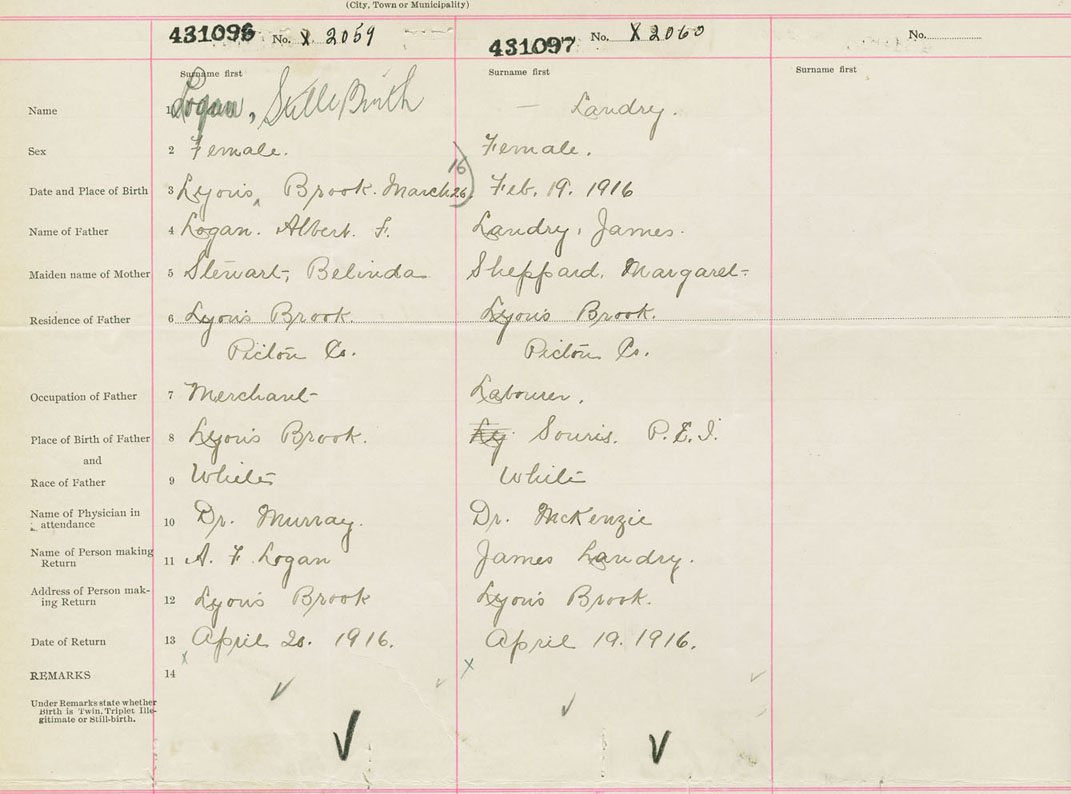 (City, Town or Municipality)
431096 No. X 2059 431097 No. X 2060 No.
Surname first Surname first Surname first
Name 1 Logan, Still Birth — Landry.
Sex 2 Female. Female.
16
Date and Place of Birth 3 Lyons, Brook. March 26 Feb. 19. 1916
Name of Father 4 Logan. Albert. F. Landry, James.
Maiden name of Mother 5 Stewart, Belinda Sheppard, Margaret
Residence of Father 6 Lyons Brook. Lyons Brook.
Pictou Co. Pictou Co.
Occupation of Father 7 Merchant Labourer.
Place of Birth of Father 8 Lyons Brook. Ly Souris. P.E.I.
and
Race of Father 9 White White
Name of Physician in attendance 10 Dr. Murray. Dr. McKenzie
Name of Person making Return 11 A. F. Logan James Landry.
Address of Person mak-
ing Return 12 Lyons Brook Lyons Brook.
Date of Return 13 April 20. 1916. April 19. 1916.
REMARKS 14
Under Remarks state whether
Birth is Twin, Triplet Ille-
gitimate or Still-birth.